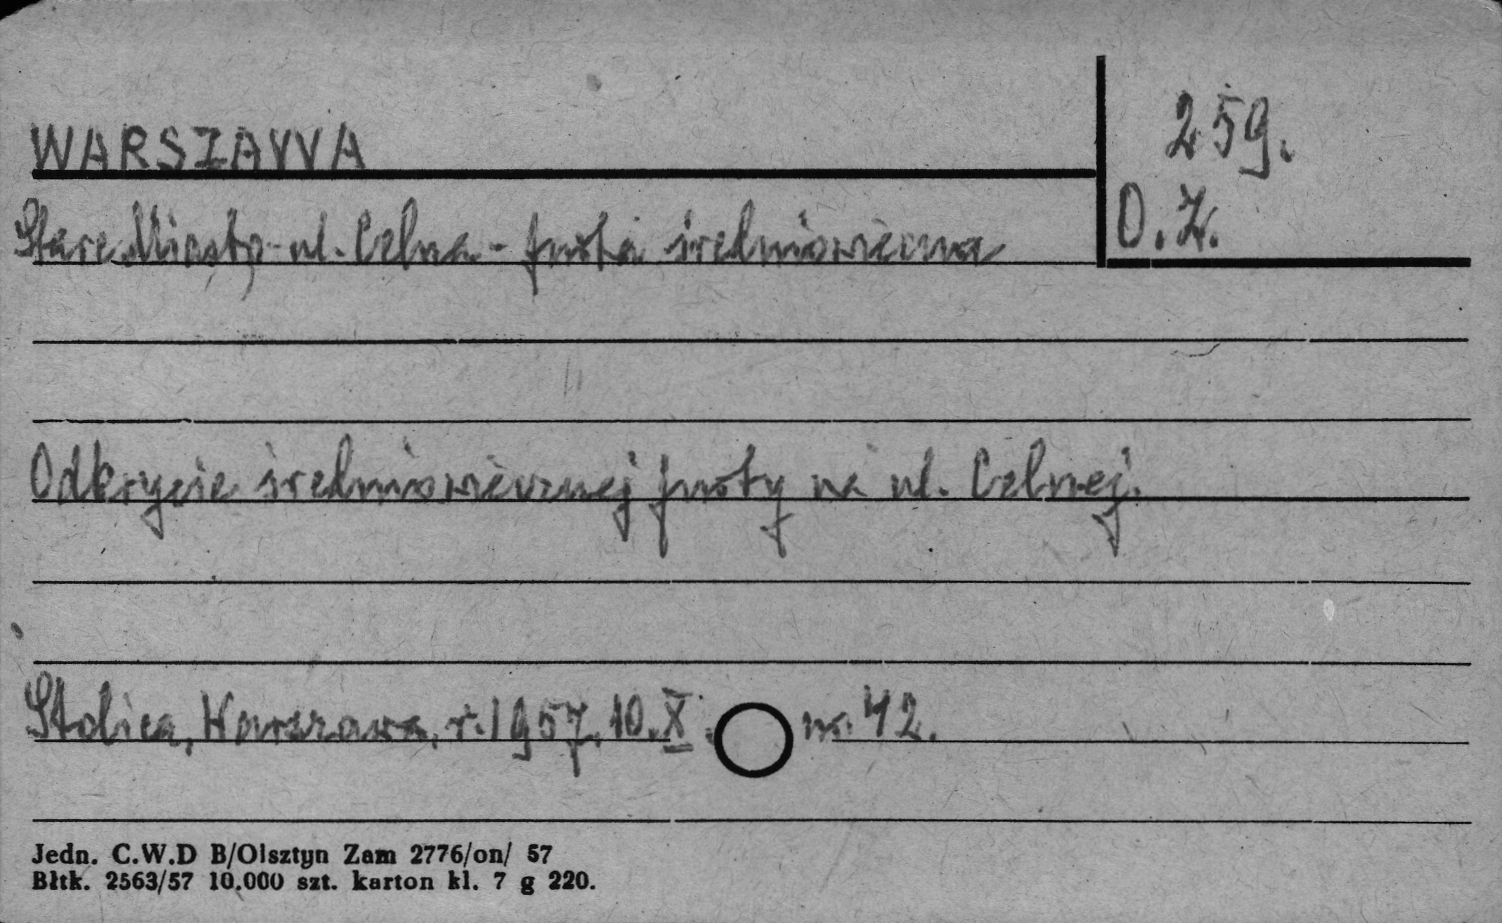 WARSZAWA
259.
O.Z.
Stare Miasto - ul. Celna - furta średniowieczna
Odkrycie średniowiecznej furty na ul. Celnej.
Stolica, Warszawa, r. 1957, 10. X. nr. 42.
Jedn. C.W.D B/Olsztyn Zam 2776/on/ 57
Błtk. 2563/57 10.000 szt. karton kl. 7 g 220.